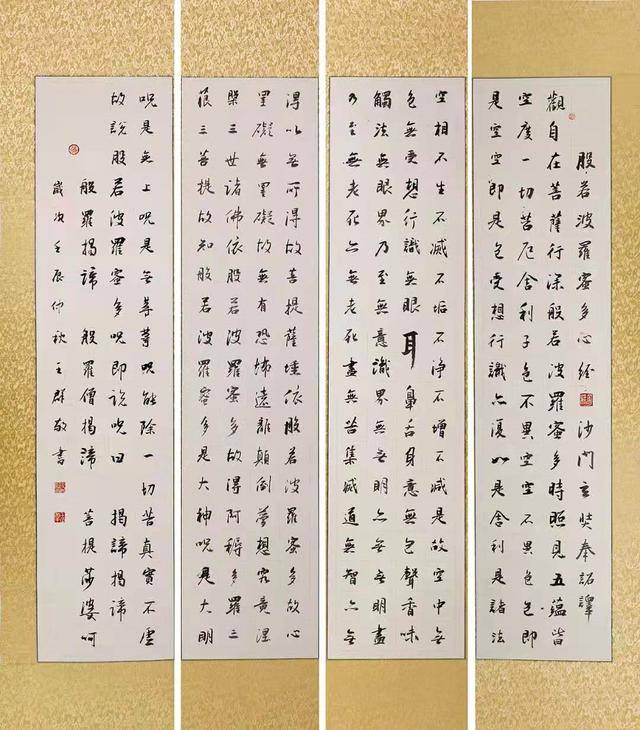 般若波羅蜜多心経 沙門玄奘奉詔譯
觀自在菩薩行深般若波羅蜜多時照見五蘊皆
空度一切苦厄舍利子色不異空空不異色色即
是空空即是色受想行識亦復如是舍利是諸法
空相不生不滅不垢不淨不增不減是故空中無
色無受想行識無眼耳鼻舌身意無色聲香味
觸法無眼界乃至無意識界無無明亦無無明盡
乃至無老死亦無老死盡無苦集滅道無智亦無
得以無所得故菩提薩埵依般若波羅蜜多故心
罣礙無罣礙故無有恐怖遠離顛倒夢想究竟涅
槃三世諸佛依般若波羅蜜多故得阿耨多羅三
藐三菩提故知般若波羅蜜多是大神呪是大明
呪是無上呪是無等等呪能除一切苦真實不虛
故說般若波羅蜜多呪即說呪曰 揭諦揭諦
般羅揭諦 般羅僧揭諦 菩提莎婆呵
歲次壬辰仲秋王群敬書